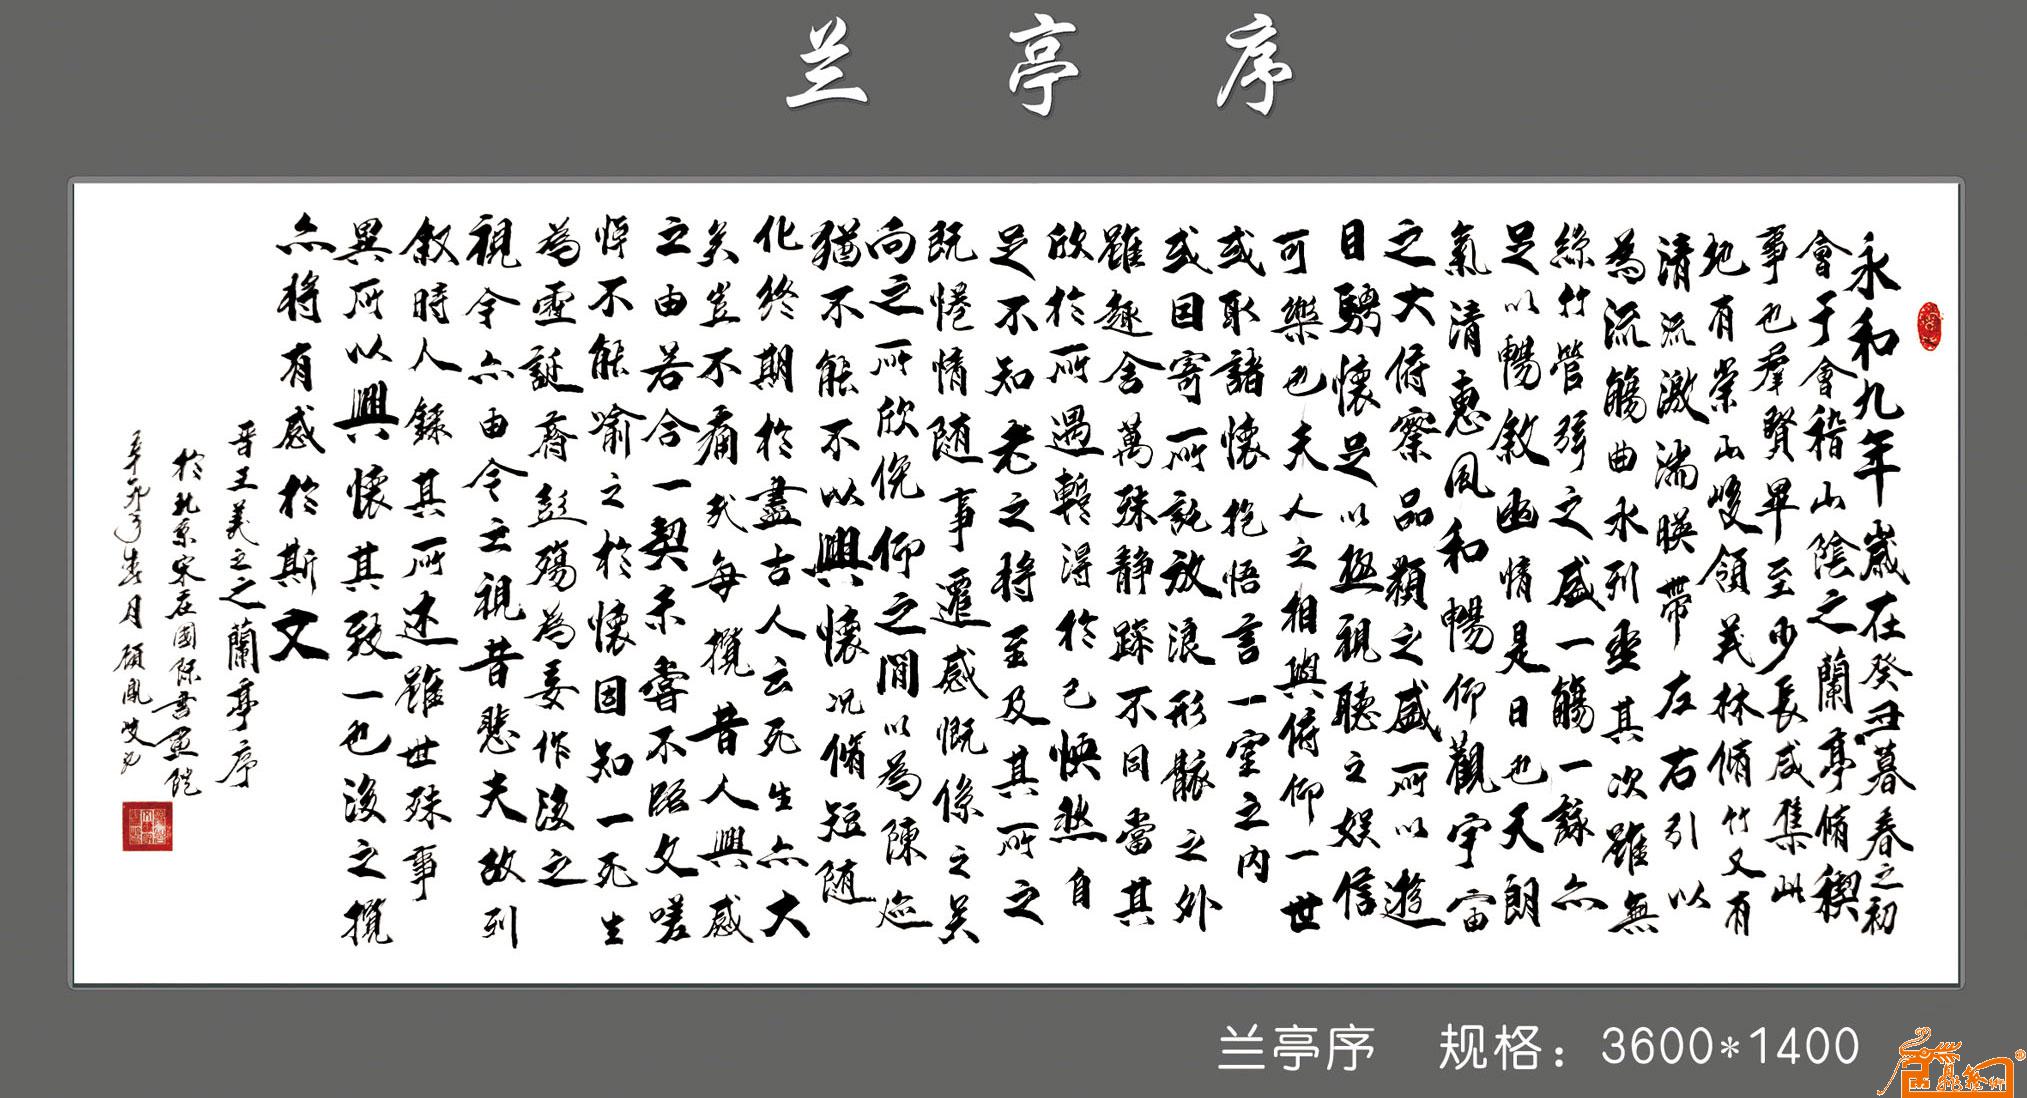 兰亭序
永和九年歲在癸丑暮春之初
會于會稽山陰之蘭亭脩稧
事也羣賢畢至少長咸集此
地有崇山峻領茂林脩竹又有
清流激湍暎帶左右引以
為流觴曲水列坐其次雖無
絲竹管弦之盛一觴一詠亦
足以暢敘幽情是日也天朗
氣清惠風和暢仰觀宇宙
之大俯察品類之盛所以遊
目騁懷足以極視聽之娛信
可樂也夫人之相與俯仰一世
或取諸懷抱悟言一室之內
或因寄所託放浪形骸之外
雖趣舍萬殊靜躁不同當其
欣於所遇暫得於己怏然自
足不知老之將至及其所之
既惓情隨事遷感慨係之矣
向之所欣俛仰之閒以為陳迹
猶不能不以興懷況脩短隨
化終期於盡古人云死生亦大
矣豈不痛哉每攬昔人興感
之由若合一契未嘗不臨文嗟
悼不能喻之於懷固知一死生
為虛誕齊彭殤為妄作後之
視今亦由今之視昔悲夫故列
敘時人錄其所述雖世殊事
異所以興懷其致一也後之攬
亦將有感於斯文
晉王羲之之蘭亭序
於北京宋庄國际書画院
辛卯
月顧鳳
兰亭序 规格：3600*1400